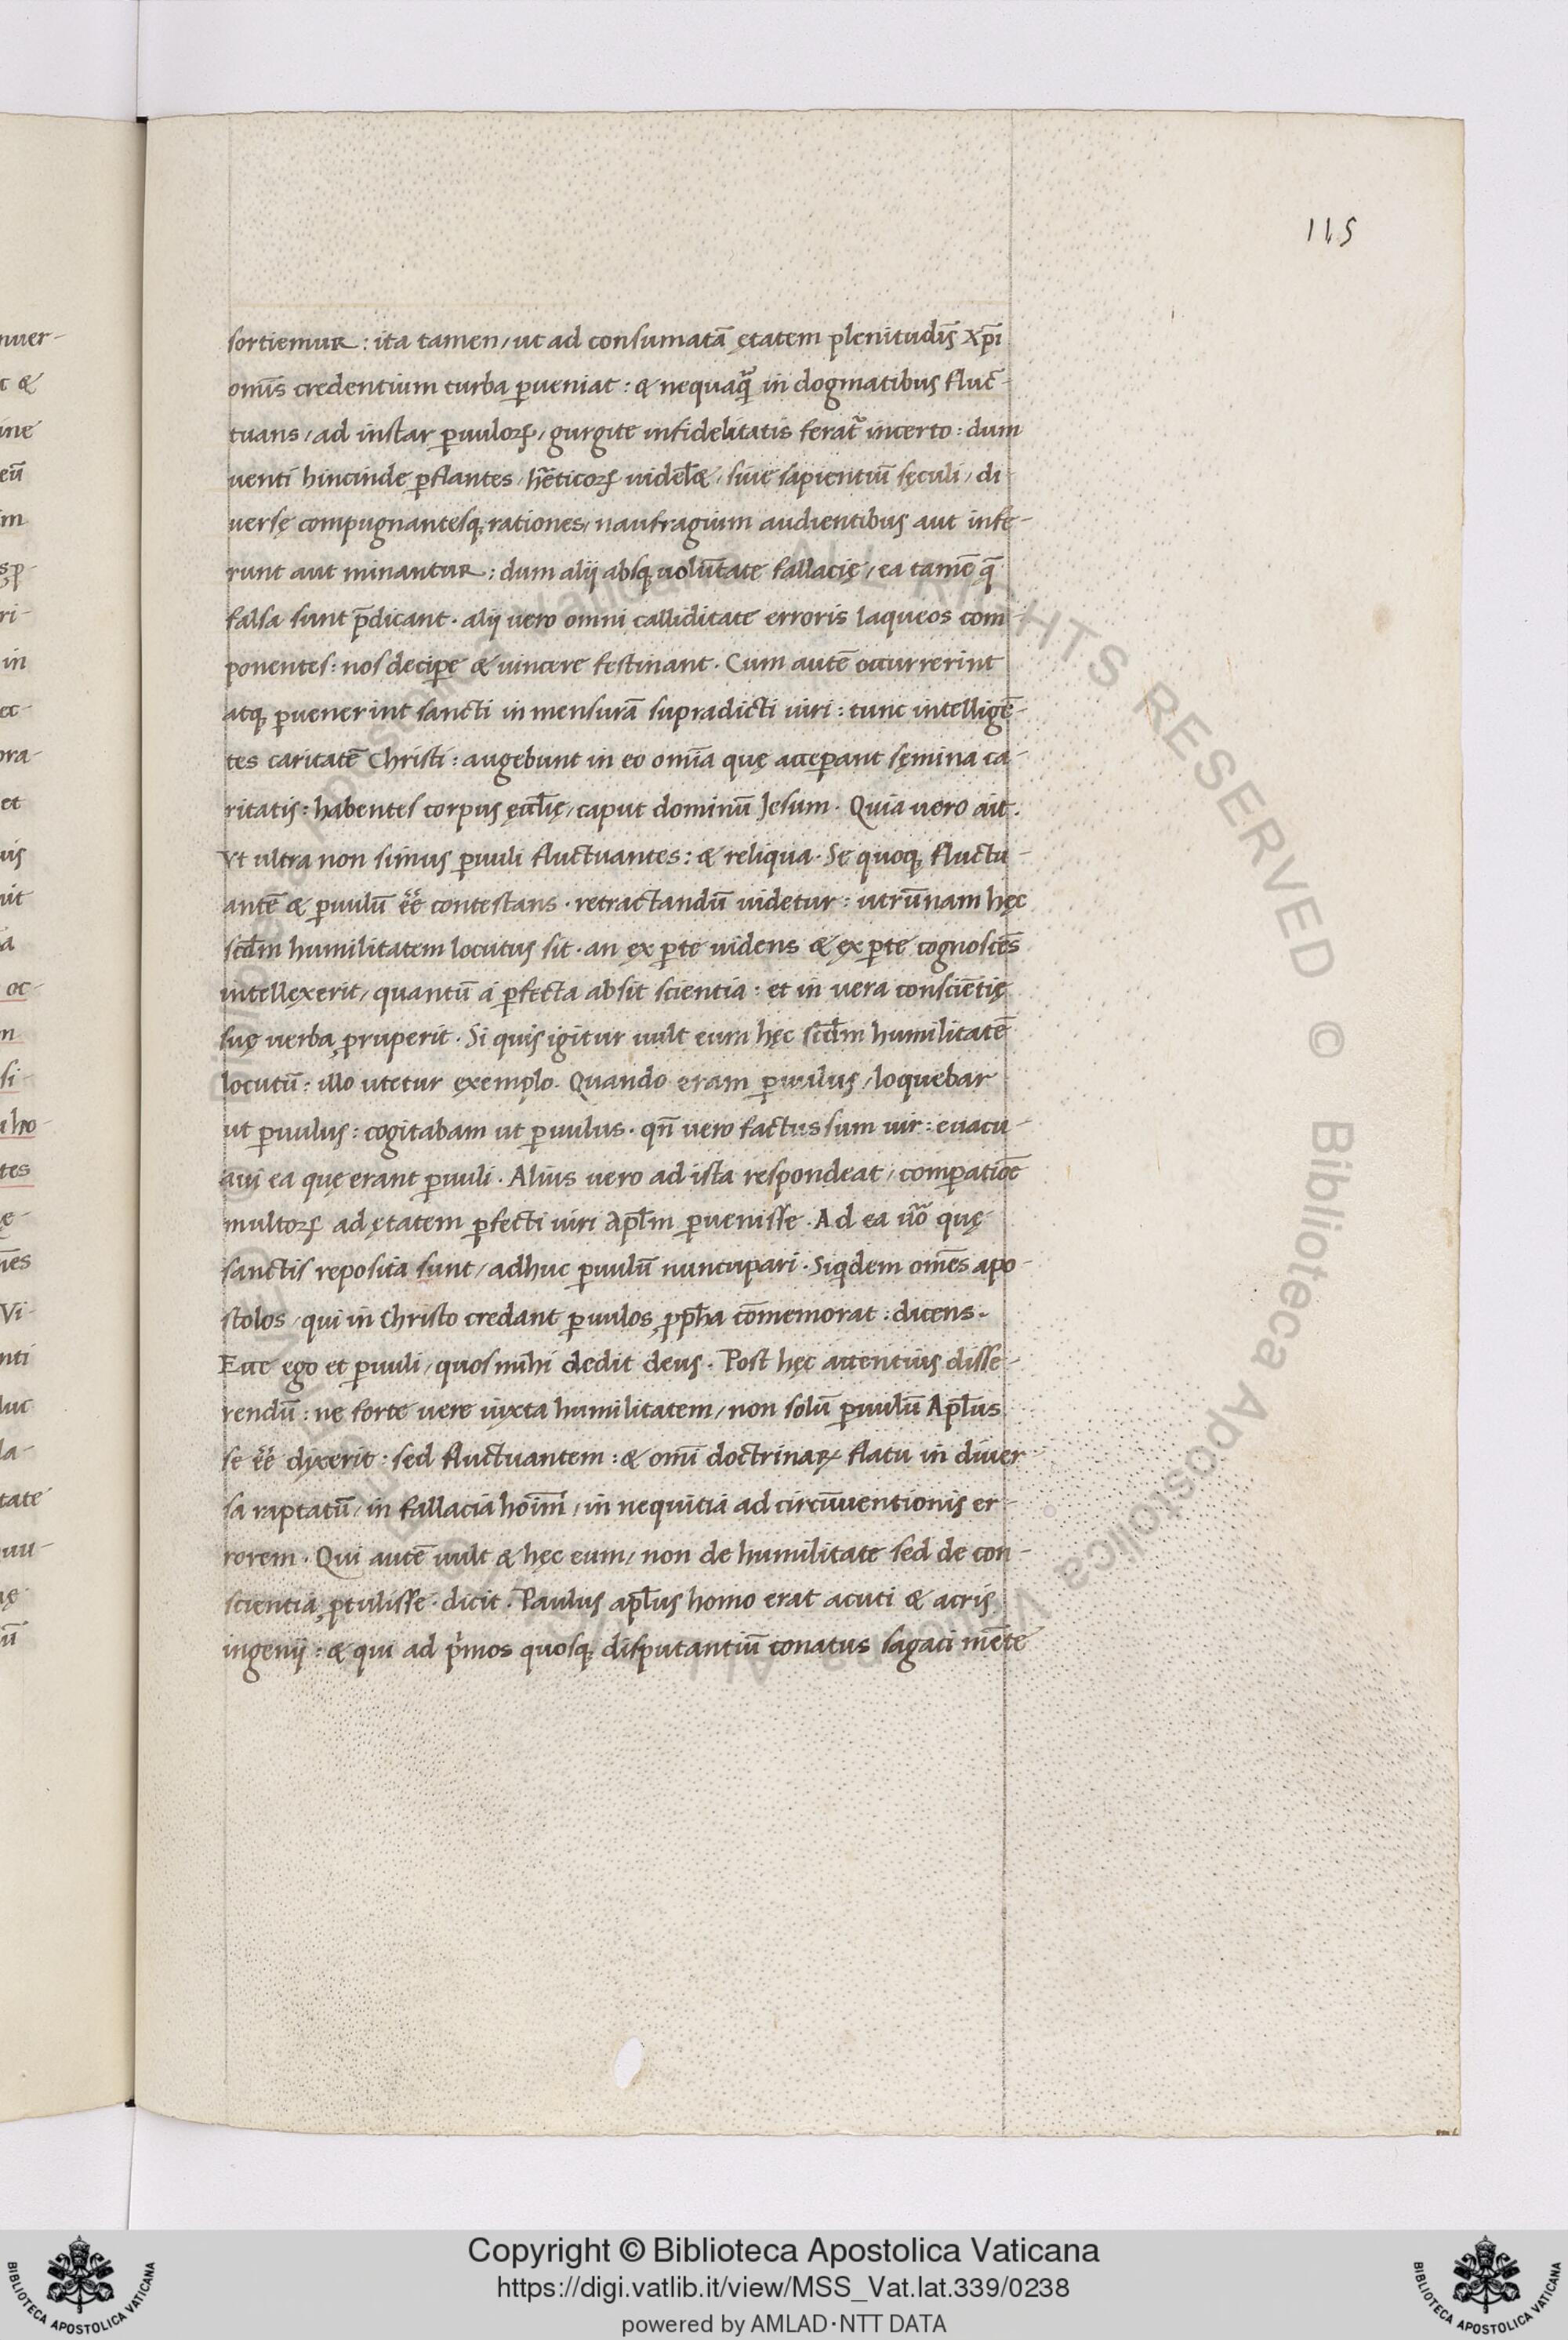 115
sortiemur : ita tamen / ut ad consumatā ętatem plenitudis̄ xp̄i
omīs credentium turba ꝑueniat : & nequaq̄ in dogmatibus fluc-
tuans / ad instar ꝑuuloꝝ / gurgite infidelitatis ferat᷑ incerto : dum
uenti hincinde ꝑflantes / hr̄eticoꝝ uidel& / siue sapientiū sęculi / di
uersę compugnantesq; rationes / naufragium audientibus aut infe-
runt aut minantur : dum alij absq; uolūtate fallacię / ea tamē q̄
falsa sunt p̄dicant · alij uero omni calliditate erroris laqueos com
ponentes : nos deciꝑe & uincere festinant · Cum autē occurrerint
atq; ꝑuenerint sancti in mensurā supradicti uiri : tunc intelligē-
tes caritatē Christi : augebunt in eo omīa quę acceꝑant sęmina ca-
ritatis : habentes corpus ęccl̄ię / caput dominū Jesum · Quia uero ait ·
Vt ultra non simus ꝑuuli fluctuantes : & reliqua · Se quoq; fluctu-
antē & ꝑuulū ēē contestans · retractandū uidetur : utrūnam hęc
scd̄m humilitatem locutus sit · an ex ꝑte uidens & ex ꝑte cognoscēs
intellexerit / quantū a ꝑfecta absit scientia : et in uera consciētię
suę uerba ꝓruperit · Si quis igitur uult eum hęc scd̄m humilitatē
locutū : illo utetur exemplo · Quando eram ꝑuulus / loquebar
ut ꝑuulus : cogitabam ut ꝑuulus · qn̄ uero factus sum uir : euacu-
aui ea quę erant ꝑuuli · Alius uero ad ista respondeat / comꝑatiōe
multoꝝ ad ętatem ꝑfecti uiri apl̄m ꝑuenisse · Ad ea u͞o quę
sanctis reposita sunt / adhuc ꝑuulū nuncupari · Siqdem omēs apo-
stolos / qui in Christo credant ꝑuulos ꝓph̄a cōmemorat : dicens ·
Ecce ego et ꝑuuli / quos mihi dedit deus · Post hęc attentius disse-
rendū : ne forte uere iuxta humilitatem / non solū ꝑuulū Apl̄us
se ēē dixerit : sed fluctuantem : & omī doctrinaꝝ flatu in diuer-
sa raptatū / in fallacia hoīm / in nequitia ad circūuentionis er-
rorem · Qui autē uult & hęc eum / non de humilitate sed de con-
scientia ꝓtulisse · dicit · Paulus apl̄us homo erat acuti & acris
ingenij : & qui ad pͥmos quosq; disputantiū conatus sagaci mēte
Copyright © Biblioteca Apostolica Vaticana
https://digi.vatlib.it/view/MSS_Vat.lat.339/0238
powered by AMLAD·NTT DATA